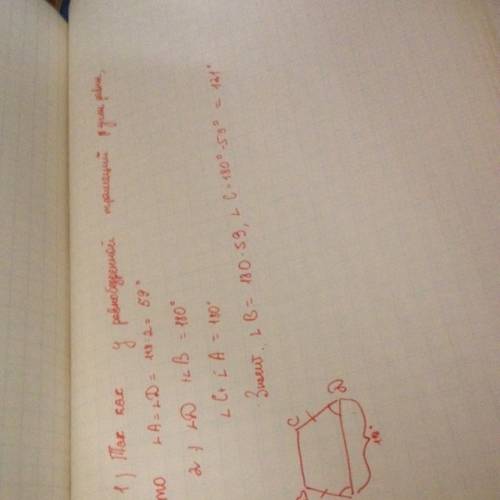 1) Так как у равнобедренной трапеции углы равны,
то ∠A = ∠D = 118:2 = 59°
2) ∠D + ∠B = 180°
∠C + ∠A = 180°
Значит. ∠B = 180-59, ∠C = 180°-59° = 121°
C
D